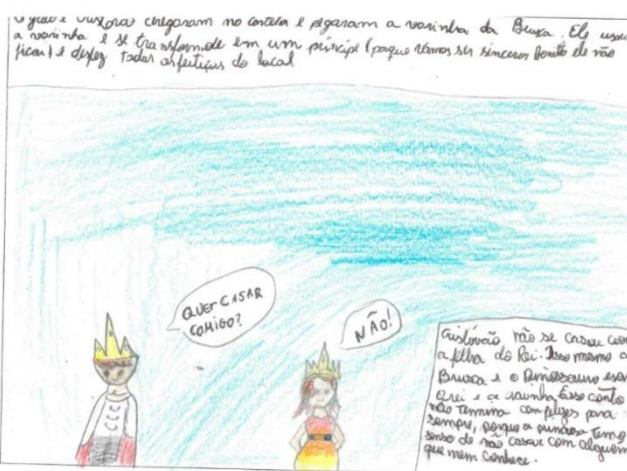 chegaram no castelo e pegaram a varinha da Bruxa. Ele usou
a varinha e se transformode em um principe (porque vamos ser sinceros Bonito ele não
ficou) e desfez todas as feitiços do local
QUER CASAR
COMIGO?
NÃO!
Cristóvão não se casou com
a filha do Rei. Isso mesmo a
Bruxa e o Dinossauro eram
rei e a rainha. Esse conto
não termina com felizes para
sempre, porque a princesa temo
senso de não casar com alguém
que nem conhece.